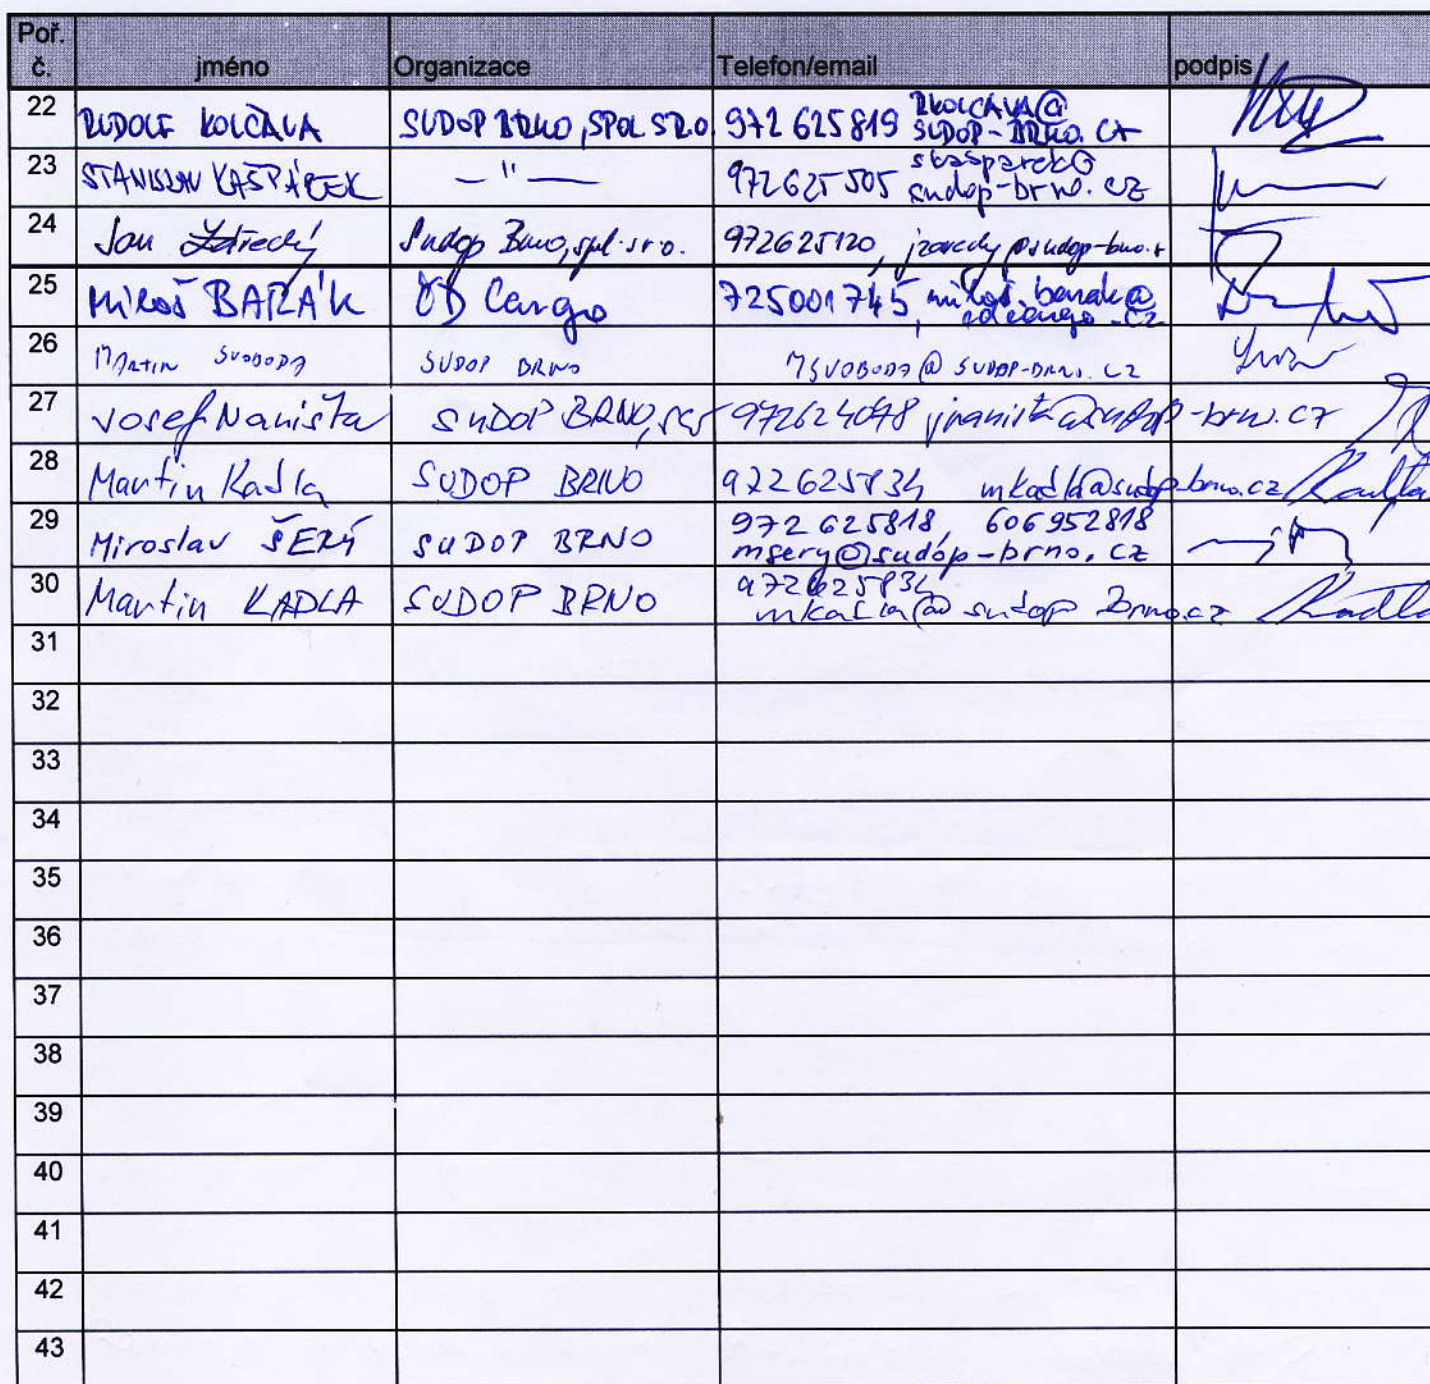 Poř. č. jméno Organizace Telefon/email podpis
22 RUDOLF KOLČAVA SUDOP BRNO, SPOL S R.O. 972 625 819 RKOLCAVA@
SUDOP-BRNO.CZ
23 STANISLAV KAŠPÁREK — " — 972 625 505 skasparek@
sudop-brno.cz
24 Jan Sudop Brno, spol. s r.o. 972625120,
25 Miloš BARÁK ČD Cargo 725001745, milos.barak@
cdcargo.cz
26 MARTIN SVOBODA SUDOP BRNO MSVOBODA@SUDOP-BRNO.CZ
27 Josef Naništa SUDOP BRNO, 972624048 jnanista@sudop-brno.cz
28 Martin Kadla SUDOP BRNO 972625834 mkadla@sudop-brno.cz Kadla
29 Miroslav ŠERÝ SUDOP BRNO 972 625818, 606 952818
msery@sudop-brno.cz
30 Martin KADLA SUDOP BRNO 972625834
mkadla@sudop Brno.cz Kadla
31
32
33
34
35
36
37
38
39
40
41
42
43